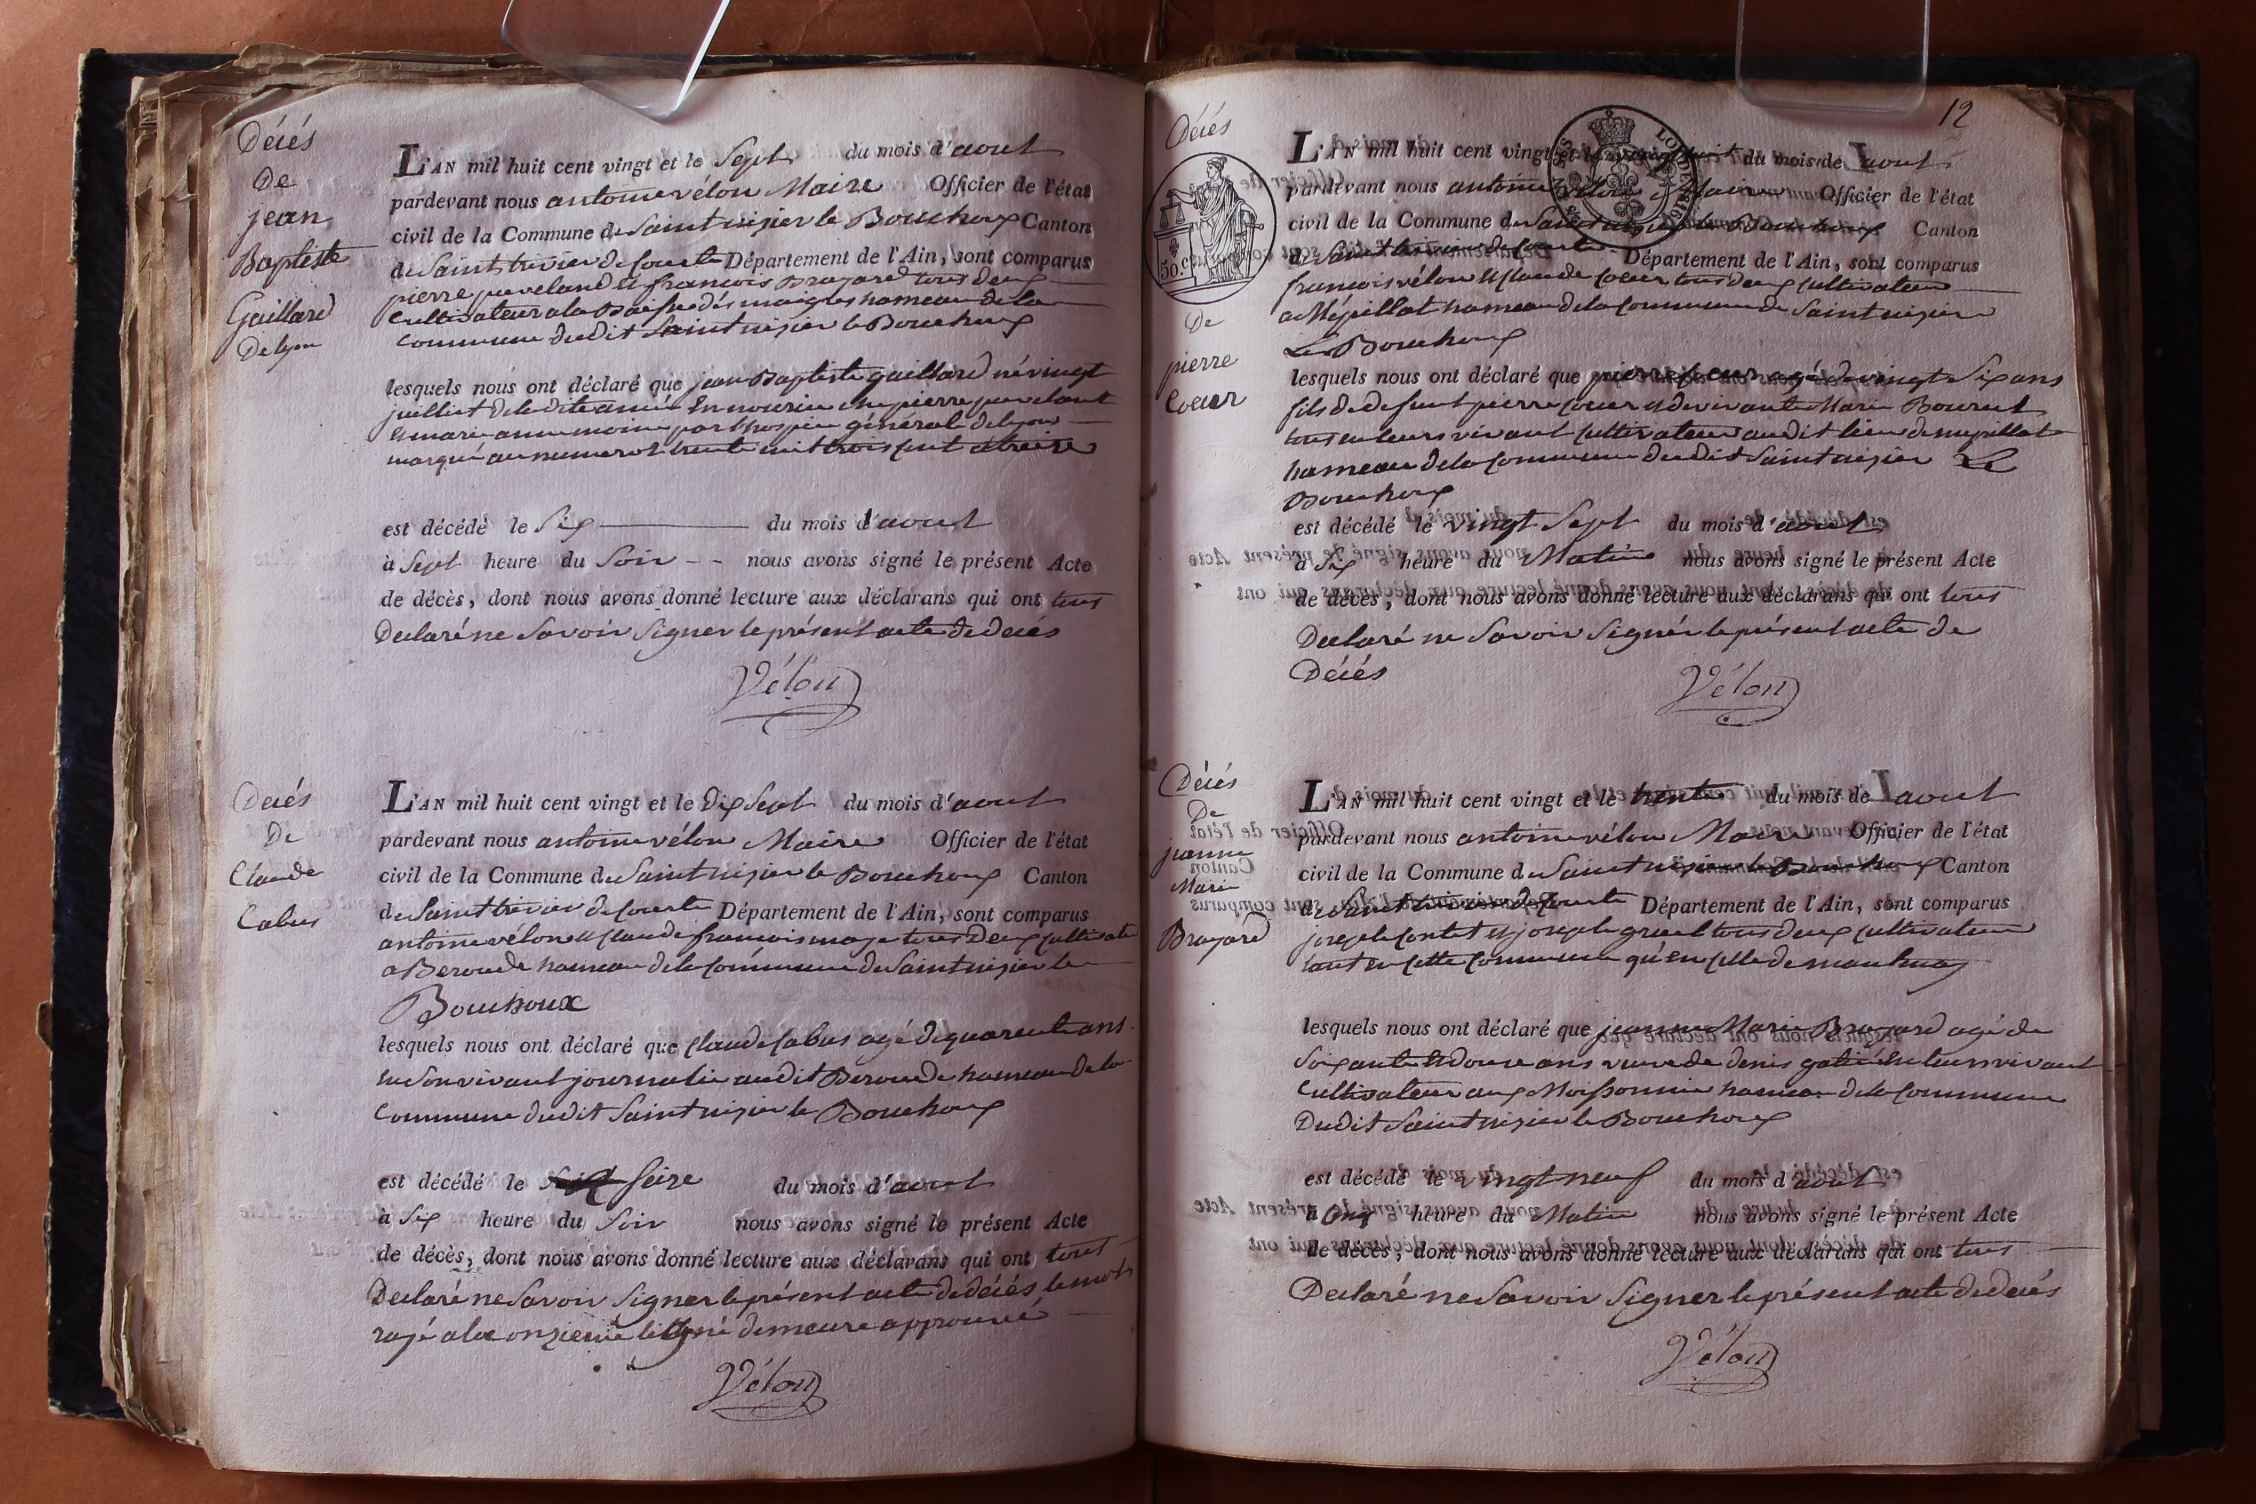 Décés
De
jean
Baptiste
Gaillard
De lyon
L'AN mil huit cent vingt et le Sept du mois d'aout
pardevant nous antoine vélon Maire Officier de l'état
civil de la Commune de Saint nizier le Bouchoux Canton
de Saint trivier de Courte Département de l'Ain, sont comparus
pierre et françois Brayard tous deux
Cultivateur a la des maigres hameau de la
Commune dudit Saint nizier le Bouchoux
lesquels nous ont déclaré que jean Baptiste gaillard né vingt
juillet de la dite année En nourice che pierre
Et marie anne moine par l'hospice général de lyon
marqué au numerot trente mil trois cent
est décédé le Six du mois d'aout
à Sept heure du Soir - - nous avons signé le présent Acte
de décès, dont nous avons donné lecture aux déclarans qui ont tous
Declaré ne Savoir Signer le présent acte de décés
Vélon
Décés
De
Claude
Cabus
L'AN mil huit cent vingt et le dix Sept du mois d'aout
pardevant nous antoine vélon Maire Officier de l'état
civil de la Commune de Saint nizier le Bouchoux Canton
de Saint trivier de Courte Département de l'Ain, sont comparus
antoine vélon et Claude françois maze tous Deux Cultivate
a Beroude hameau de la Commune de Saint nizier le
Bouchoux
lesquels nous ont déclaré que Claude Cabus agé de quarente ans
En Son vivant journalie audit Beroude hameau de la
Commune dudit Saint nizier le Bouchoux
est décédé le Seize du mois d'aout
à Six heure du Soir nous avons signé le présent Acte
de décès, dont nous avons donné lecture aux déclarans qui ont tous
Declaré ne Savoir Signer le présent acte de décés le mot
razé a la onzieme ligne demeure approuvé
Vélon
12
Décés
50.c
De
pierre
Coeur
L'AN mil huit cent vingt et le vingt huit du mois de aout
pardevant nous antoine vélon Maire Officier de l'état
civil de la Commune de Saint nizier le Bouchoux Canton
de Saint trivier de Courte Département de l'Ain, sont comparus
francois vélon et Claude Coeur tous deux Cultivateur
a Mépillat hameau de la Commune de Saint nizier
Le Bouchoux
lesquels nous ont déclaré que pierre Coeur agé de vingt Six ans
fils de defunt pierre Coeur et de vivante Marie Bourcet
tous en leurs vivant Cultivateur audit lieu de mépillat
hameau de la Commune dudit Saint nizier Le
Bouchoux
est décédé le vingt Sept du mois d'aout
à Six heure du Matin nous avons signé le présent Acte
de décès, dont nous avons donné lecture aux déclarans qui ont tous
Declaré ne Savoir Signer le présent acte de
Décés
Vélon
Décés
De
jeanne
Marie
Brayard
L'AN mil huit cent vingt et le trente du mois de aout
pardevant nous antoine vélon Maire Officier de l'état
civil de la Commune de Saint nizier le Bouchoux Canton
de Saint trivier de Courte Département de l'Ain, sont comparus
joseph Contet et joseph tous deux Cultivateur
tant en cette Commune qu'En Celle de
lesquels nous ont déclaré que jeanne Marie Brayard agé de
Soixante et douze ans veuve de denis En leurs vivant
Cultivateur aux Moissonnier hameau de la Commune
Dudit Saint nizier le Bouchoux
est décédé le vingt neuf du mois d'aout
à heure du Matin nous avons signé le présent Acte
de décès, dont nous avons donné lecture aux déclarans qui ont tous
Declaré ne Savoir Signer le présent acte de décés
Vélon